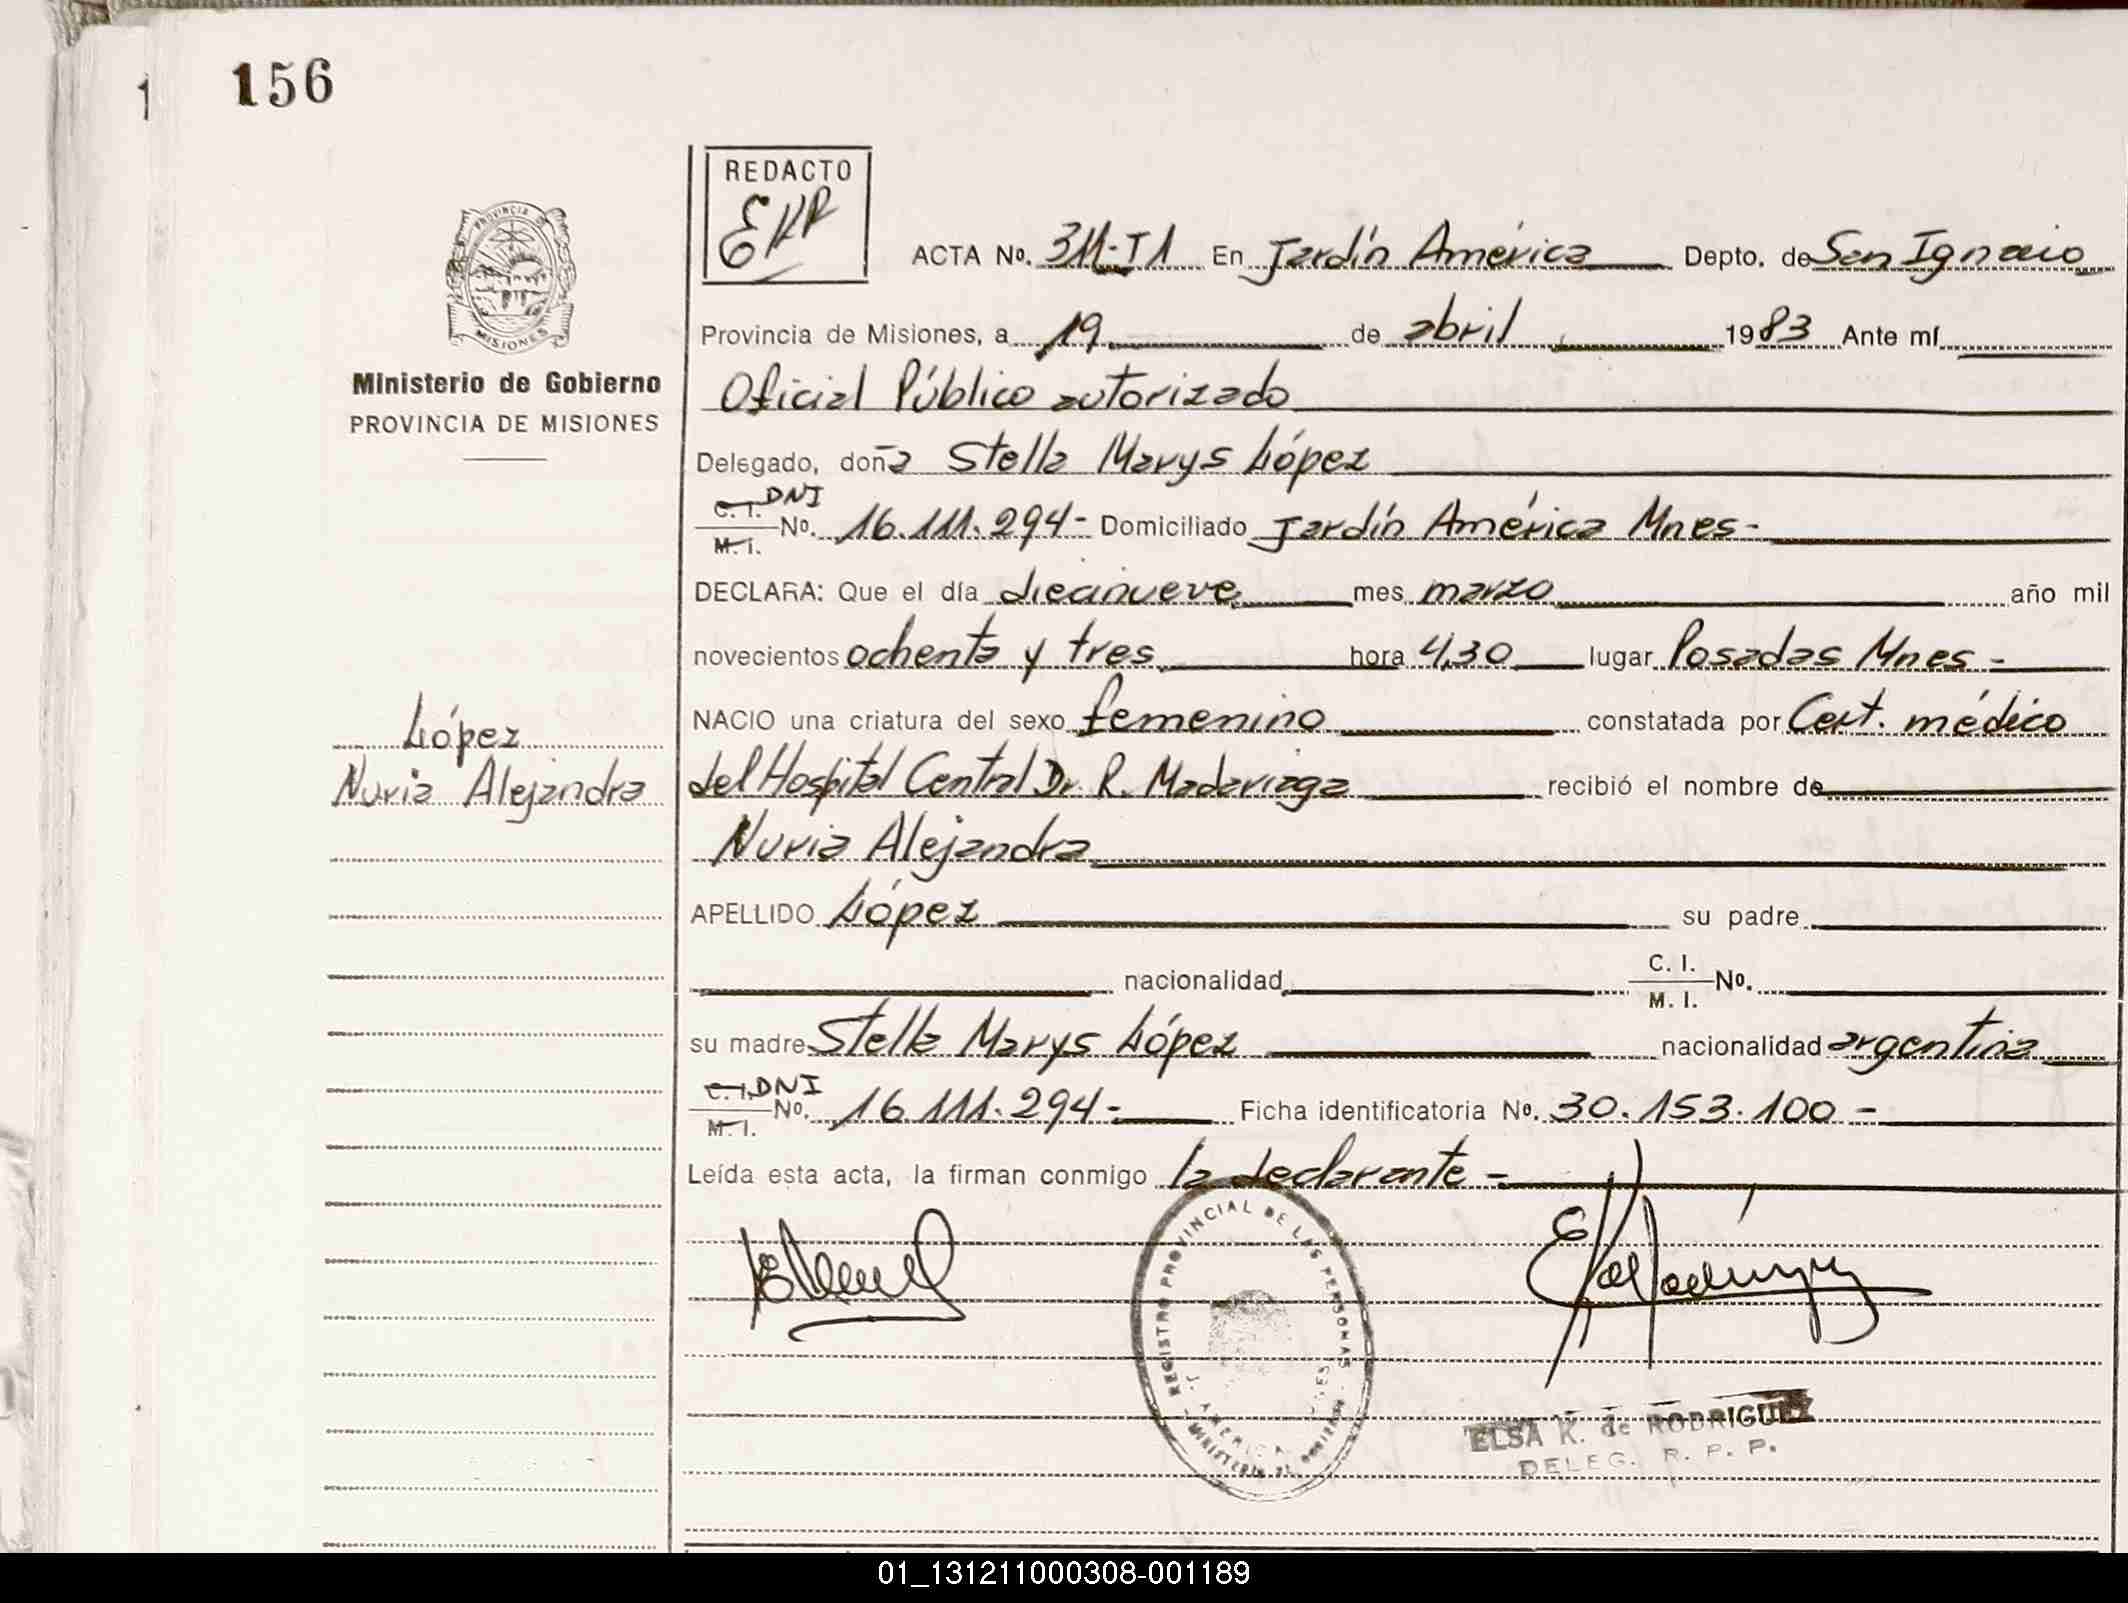 1 156
REDACTO
EKR
ACTA No. 311-T1 En Jardín América Depto. de San Ignacio
PROVINCIA DE MISIONES
Provincia de Misiones, a 19 de abril 1983 Ante mí
Ministerio de Gobierno
PROVINCIA DE MISIONES
Oficial Público autorizado
Delegado, doña Stella Marys López
C. I. DNI
M. I. No. 16.111.294- Domiciliado Jardín América Mnes-
DECLARA: Que el día diecinueve mes marzo año mil
novecientos ochenta y tres hora 4,30 lugar Posadas Mnes-
NACIO una criatura del sexo femenino constatada por Cert. médico
López
Nuria Alejandra
del Hospital Central Dr. R. Madariaga recibió el nombre de
Nuria Alejandra
APELLIDO López su padre
nacionalidad C. I. M. I. No.
su madre Stella Marys López nacionalidad argentina
C. I. DNI
M. I. No. 16.111.294- Ficha identificatoria No. 30.153.100-
Leída esta acta, la firman conmigo la declarante-
REGISTRO PROVINCIAL DE LAS PERSONAS
J. AMERICA
MINISTERIO DE GOBIERNO
ELSA K. de RODRIGUEZ
DELEG. R. P. P.
01_131211000308-001189